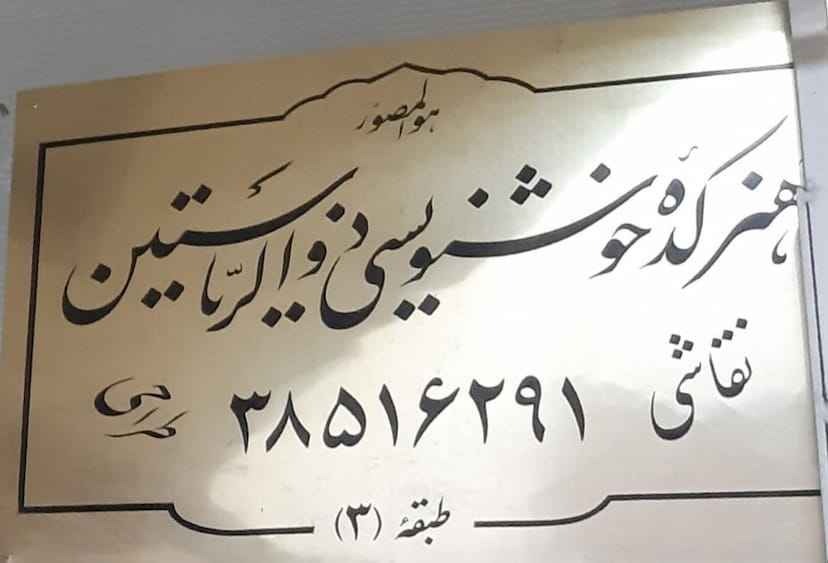 هوالمصوّر
هنرکدهٔ خوشنویسی ذوالریاستین
نقاشی ۳۸۵۱۶۲۹۱ طراحی
طبقهٔ (۳)